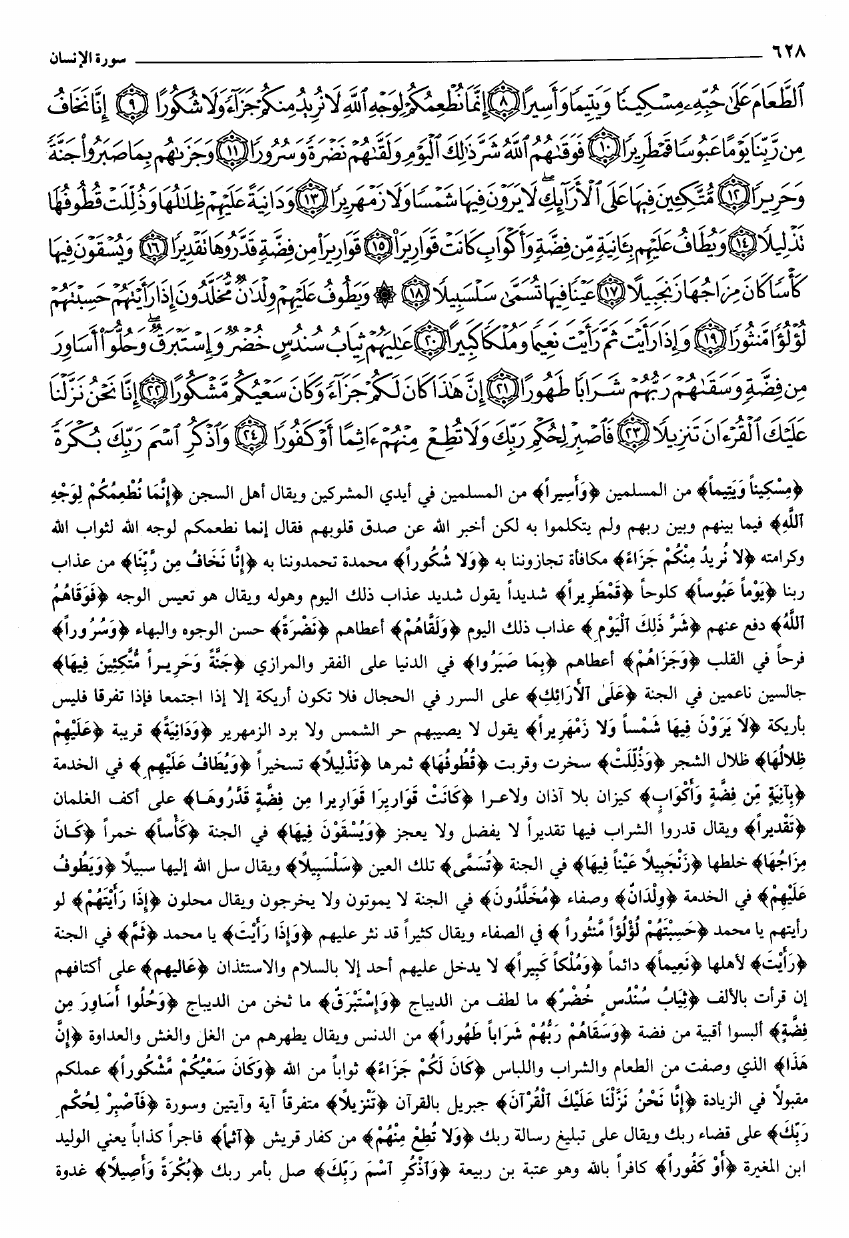 ٦٢٨ سورة الإنسان
ٱلطَّعَامَ عَلَىٰ حُبِّهِۦ مِسْكِينًا وَيَتِيمًا وَأَسِيرًا ﴿٨﴾ إِنَّمَا نُطْعِمُكُمْ لِوَجْهِ ٱللَّهِ لَا نُرِيدُ مِنكُمْ جَزَآءً وَلَا شُكُورًا ﴿٩﴾ إِنَّا نَخَافُ
مِن رَّبِّنَا يَوْمًا عَبُوسًا قَمْطَرِيرًا ﴿١٠﴾ فَوَقَىٰهُمُ ٱللَّهُ شَرَّ ذَٰلِكَ ٱلْيَوْمِ وَلَقَّىٰهُمْ نَضْرَةً وَسُرُورًا ﴿١١﴾ وَجَزَىٰهُم بِمَا صَبَرُوا۟ جَنَّةً
وَحَرِيرًا ﴿١٢﴾ مُّتَّكِـِٔينَ فِيهَا عَلَى ٱلْأَرَآئِكِ ۖ لَا يَرَوْنَ فِيهَا شَمْسًا وَلَا زَمْهَرِيرًا ﴿١٣﴾ وَدَانِيَةً عَلَيْهِمْ ظِلَـٰلُهَا وَذُلِّلَتْ قُطُوفُهَا
تَذْلِيلًا ﴿١٤﴾ وَيُطَافُ عَلَيْهِم بِـَٔانِيَةٍ مِّن فِضَّةٍ وَأَكْوَابٍ كَانَتْ قَوَارِيرَا۠ ﴿١٥﴾ قَوَارِيرَا۟ مِن فِضَّةٍ قَدَّرُوهَا تَقْدِيرًا ﴿١٦﴾ وَيُسْقَوْنَ فِيهَا
كَأْسًا كَانَ مِزَاجُهَا زَنجَبِيلًا ﴿١٧﴾ عَيْنًا فِيهَا تُسَمَّىٰ سَلْسَبِيلًا ﴿١٨﴾ ۞ وَيَطُوفُ عَلَيْهِمْ وِلْدَٰنٌ مُّخَلَّدُونَ إِذَا رَأَيْتَهُمْ حَسِبْتَهُمْ
لُؤْلُؤًا مَّنثُورًا ﴿١٩﴾ وَإِذَا رَأَيْتَ ثَمَّ رَأَيْتَ نَعِيمًا وَمُلْكًا كَبِيرًا ﴿٢٠﴾ عَـٰلِيَهُمْ ثِيَابُ سُندُسٍ خُضْرٌ وَإِسْتَبْرَقٌ ۖ وَحُلُّوٓا۟ أَسَاوِرَ
مِن فِضَّةٍ وَسَقَىٰهُمْ رَبُّهُمْ شَرَابًا طَهُورًا ﴿٢١﴾ إِنَّ هَـٰذَا كَانَ لَكُمْ جَزَآءً وَكَانَ سَعْيُكُم مَّشْكُورًا ﴿٢٢﴾ إِنَّا نَحْنُ نَزَّلْنَا
عَلَيْكَ ٱلْقُرْءَانَ تَنزِيلًا ﴿٢٣﴾ فَٱصْبِرْ لِحُكْمِ رَبِّكَ وَلَا تُطِعْ مِنْهُمْ ءَاثِمًا أَوْ كَفُورًا ﴿٢٤﴾ وَٱذْكُرِ ٱسْمَ رَبِّكَ بُكْرَةً
﴿مِسْكِيناً وَيَتِيماً﴾ من المسلمين ﴿وَأَسِيراً﴾ من المسلمين في أيدي المشركين ويقال أهل السجن ﴿إِنَّمَا نُطْعِمُكُمْ لِوَجْهِ
ٱللَّهِ﴾ فيما بينهم وبين ربهم ولم يتكلموا به لكن أخبر الله عن صدق قلوبهم فقال إنما نطعمكم لوجه الله لثواب الله
وكرامته ﴿لَا نُرِيدُ مِنْكُمْ جَزَاءً﴾ مكافأة تجازوننا به ﴿وَلَا شُكُوراً﴾ محمدة تحمدوننا به ﴿إِنَّا نَخَافُ مِن رَّبِّنَا﴾ من عذاب
ربنا ﴿يَوْماً عَبُوساً﴾ كلوحاً ﴿قَمْطَرِيراً﴾ شديداً يقول شديد عذاب ذلك اليوم وهوله ويقال هو تعيس الوجه ﴿فَوَقَاهُمُ
ٱللَّهُ﴾ دفع عنهم ﴿شَرَّ ذَلِكَ ٱلْيَوْمِ﴾ عذاب ذلك اليوم ﴿وَلَقَّاهُمْ﴾ أعطاهم ﴿نَضْرَةً﴾ حسن الوجوه والبهاء ﴿وَسُرُوراً﴾
فرحاً في القلب ﴿وَجَزَاهُمْ﴾ أعطاهم ﴿بِمَا صَبَرُوا﴾ في الدنيا على الفقر والمرازي ﴿جَنَّةً وَحَرِيراً مُّتَّكِئِينَ فِيهَا﴾
جالسين ناعمين في الجنة ﴿عَلَى ٱلْأَرَائِكِ﴾ على السرر في الحجال فلا تكون أريكة إلا إذا اجتمعا فإذا تفرقا فليس
بأريكة ﴿لَا يَرَوْنَ فِيهَا شَمْساً وَلَا زَمْهَرِيراً﴾ يقول لا يصيبهم حر الشمس ولا برد الزمهرير ﴿وَدَانِيَةً﴾ قريبة ﴿عَلَيْهِمْ
ظِلَالُهَا﴾ ظلال الشجر ﴿وَذُلِّلَتْ﴾ سخرت وقربت ﴿قُطُوفُهَا﴾ ثمرها ﴿تَذْلِيلاً﴾ تسخيراً ﴿وَيُطَافُ عَلَيْهِم﴾ في الخدمة
﴿بِآنِيَةٍ مِّن فِضَّةٍ وَأَكْوَابٍ﴾ كيزان بلا آذان ولاعرا ﴿كَانَتْ قَوَارِيرَا قَوَارِيرا مِن فِضَّةٍ قَدَّرُوهَا﴾ على أكف الغلمان
﴿تَقْدِيراً﴾ ويقال قدروا الشراب فيها تقديراً لا يفضل ولا يعجز ﴿وَيُسْقَوْنَ فِيهَا﴾ في الجنة ﴿كَأْساً﴾ خمراً ﴿كَانَ
مِزَاجُهَا﴾ خلطها ﴿زَنْجَبِيلاً عَيْناً فِيهَا﴾ في الجنة ﴿تُسَمَّى﴾ تلك العين ﴿سَلْسَبِيلاً﴾ ويقال سل الله إليها سبيلاً ﴿وَيَطُوفُ
عَلَيْهِمْ﴾ في الخدمة ﴿وِلْدَانٌ﴾ وصفاء ﴿مُخَلَّدُونَ﴾ في الجنة لا يموتون ولا يخرجون ويقال محلون ﴿إِذَا رَأَيْتَهُمْ﴾ لو
رأيتهم يا محمد ﴿حَسِبْتَهُمْ لُؤْلُؤاً مَّنْثُوراً﴾ في الصفاء ويقال كثيراً قد نثر عليهم ﴿وَإِذَا رَأَيْتَ﴾ يا محمد ﴿ثَمَّ﴾ في الجنة
﴿رَأَيْتَ﴾ لأهلها ﴿نَعِيماً﴾ دائماً ﴿وَمُلْكاً كَبِيراً﴾ لا يدخل عليهم أحد إلا بالسلام والاستئذان ﴿عَالِيهم﴾ على أكتافهم
إن قرأت بالألف ﴿ثِيَابُ سُنْدُسٍ خُضْرٌ﴾ ما لطف من الديباج ﴿وَإِسْتَبْرَقٌ﴾ ما ثخن من الديباج ﴿وَحُلُوا أَسَاوِرَ مِن
فِضَّةٍ﴾ ألبسوا أقبية من فضة ﴿وَسَقَاهُمْ رَبُّهُمْ شَرَاباً طَهُوراً﴾ من الدنس ويقال يطهرهم من الغل والغش والعداوة ﴿إِنَّ
هَذَا﴾ الذي وصفت من الطعام والشراب واللباس ﴿كَانَ لَكُمْ جَزَاءً﴾ ثواباً من الله ﴿وَكَانَ سَعْيُكُمْ مَّشْكُوراً﴾ عملكم
مقبولاً في الزيادة ﴿إِنَّا نَحْنُ نَزَّلْنَا عَلَيْكَ ٱلْقُرْآنَ﴾ جبريل بالقرآن ﴿تَنْزِيلاً﴾ متفرقاً آية وآيتين وسورة ﴿فَٱصْبِرْ لِحُكْمِ
رَبِّكَ﴾ على قضاء ربك ويقال على تبليغ رسالة ربك ﴿وَلَا تُطِعْ مِنْهُمْ﴾ من كفار قريش ﴿آثِماً﴾ فاجراً كذاباً يعني الوليد
ابن المغيرة ﴿أَوْ كَفُوراً﴾ كافراً بالله وهو عتبة بن ربيعة ﴿وَٱذْكُرِ ٱسْمَ رَبِّكَ﴾ صل بأمر ربك ﴿بُكْرَةً وَأَصِيلاً﴾ غدوة